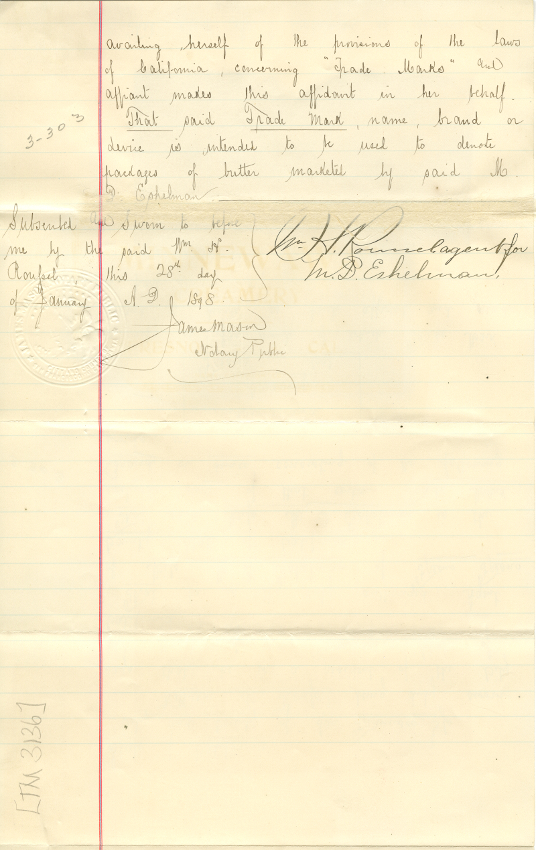 availing herself of the provisions of the laws
of California, concerning "Trade Marks" and
affiant makes this affidavit in her behalf.
That said Trade Mark, name, brand or
3-303
device is intended to be used to denote
packages of butter marketed by said M.
D. Eshelman
Subscribed and Sworn to before
me by the said Wm H.
this 28th day
of January A.D. 1898
James Mason
Notary Public
Wm H. agent for
M. D. Eshelman.
[TM 3136]